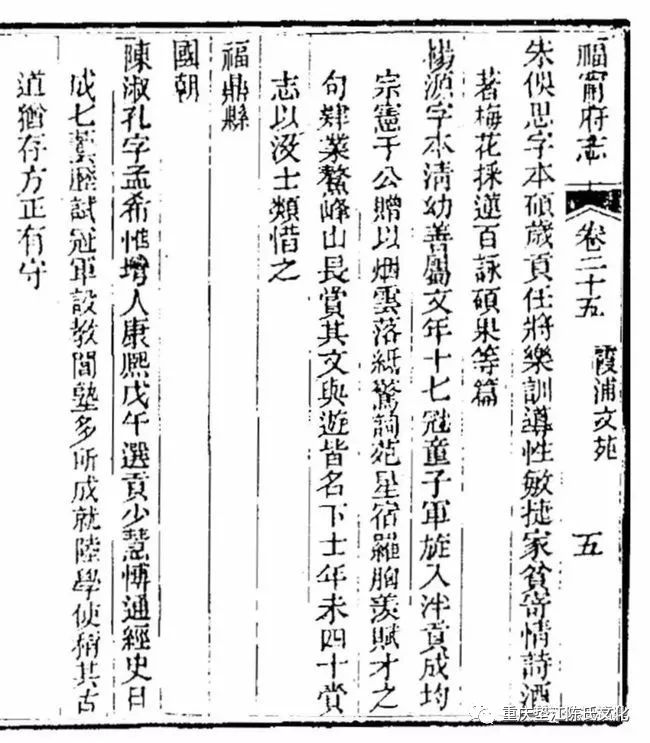 福寧府志
卷二十五
霞浦文苑
五
朱俁思字本碩歲貢任將樂訓導性敏捷家貧寄情詩酒
著梅花採蓮百詠碩果等篇
楊源字本清幼善屬文年十七冠童子軍旋入泮貢成均
宗憲于公贈以烟雲落紙驚詞苑星宿羅胸羨賦才之
句肄業鰲峰山長賞其文與遊皆名下士年未四十賞
志以沒士類惜之
福鼎縣
國朝
陳淑孔字孟希惟增人康熙戊午選貢少慧博通經史日
成七藝歷試冠軍設教閭塾多所成就陸學使稱其古
道猶存方正有守
重庆垫江陈氏文化